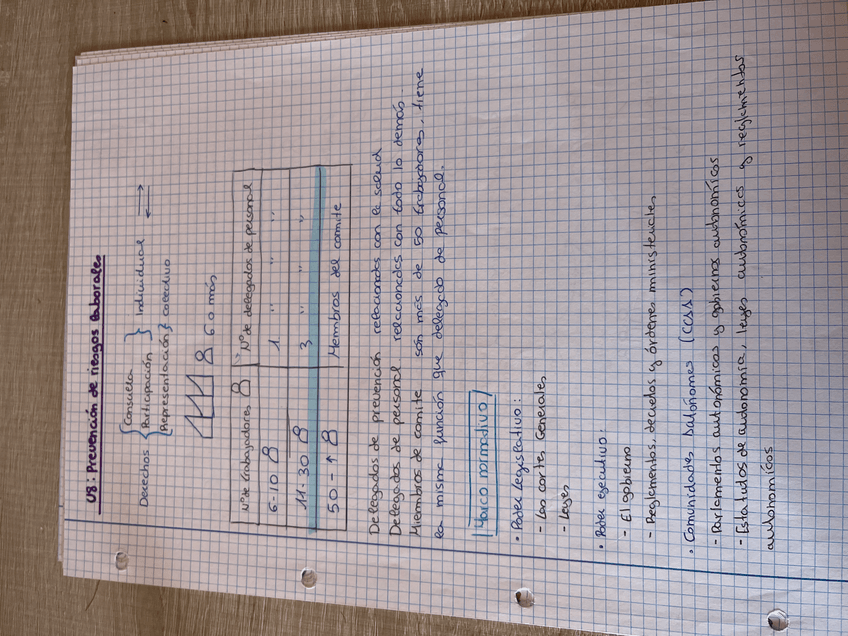 U8: Prevención de riesgos laborales
Derechos { Consulta
Participación } Individual
Representación } colectivo
6 o más
Nº de trabajadores Nº de delegados de personal
6-10 1 " " "
11-30 3 " " "
50 - ↑ Miembros del comite
Delegados de prevención relacionados con la salud
Delegados de personal relacionados con todo lo demás.
Miembros de comite son más de 50 trabajadores, tiene
la misma función que delegado de personal.
Marco normativo
• Poder legislativo:
- Las cortes Generales
- Leyes
• Poder ejecutivo:
- El gobierno
- Reglamentos, decretos y órdenes ministeriales
• Comunidades (CCSS)
- Parlamentos autonómicos y gobiernos autonómicos
- Estatutos de autonomía, leyes autonómicas y reglamientos
autonomicos